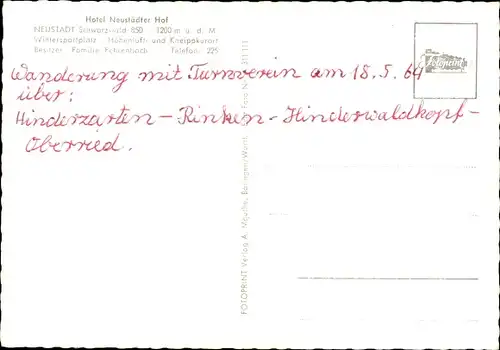 Hotel Neustädter Hof
NEUSTADT Schwarzwald 850 1200 m ü. d. M.
Wintersportplatz Höhenluft- und Kneippkurort
Besitzer Familie Telefon 225
Wanderung mit Turnverein am 18.5.64
über:
Hinderzarten – Rinken – Hinderwaldkopf –
Oberried.
FOTOPRINT Verlag A. Mauthe, Balingen/Württ. Foto Nr.
fotoprint